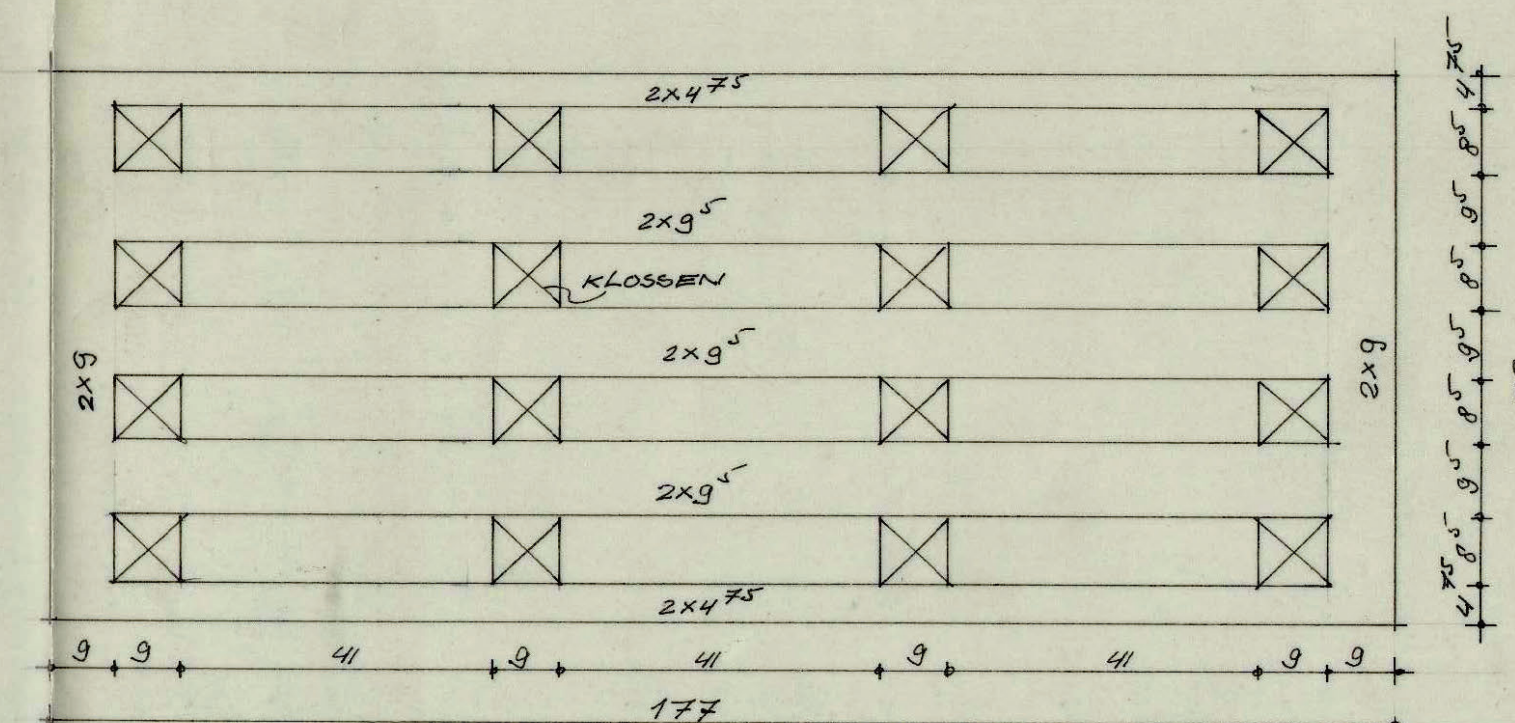 2×4⁷⁵
2×9⁵
KLOSSEN
2×9⁵
2×9⁵
2×4⁷⁵
2×9
2×9
9 9 41 9 41 9 41 9 9
177
4⁷⁵ 8⁵ 9⁵ 8⁵ 9⁵ 8⁵ 9⁵ 8⁵ 4⁷⁵